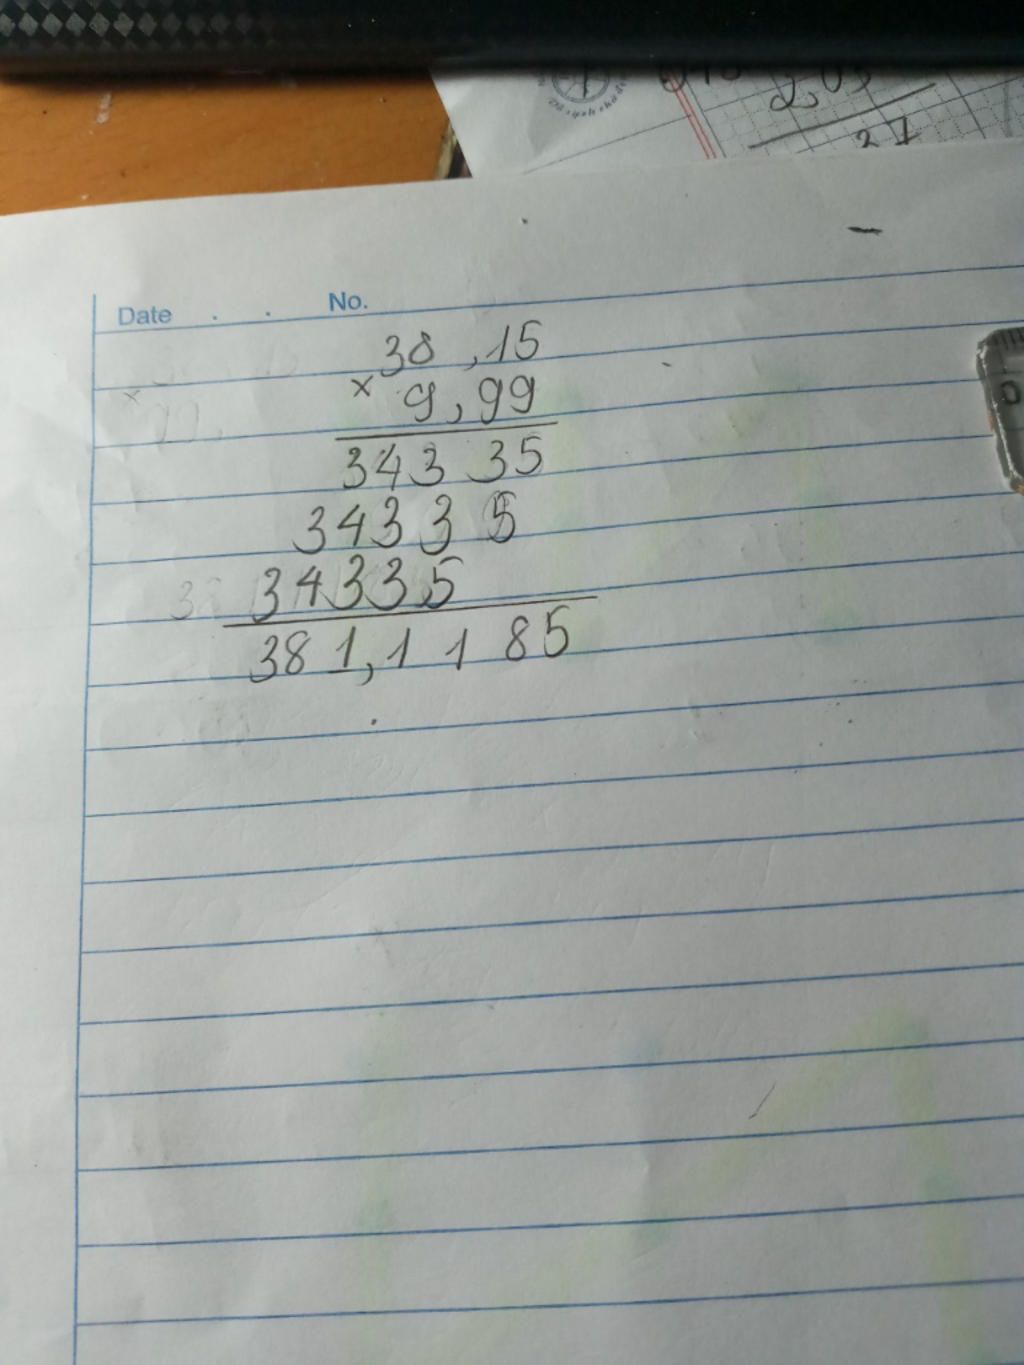 2,05
21
Date . . No.
38,15
× 9,99
34335
34335
34335
381,1185